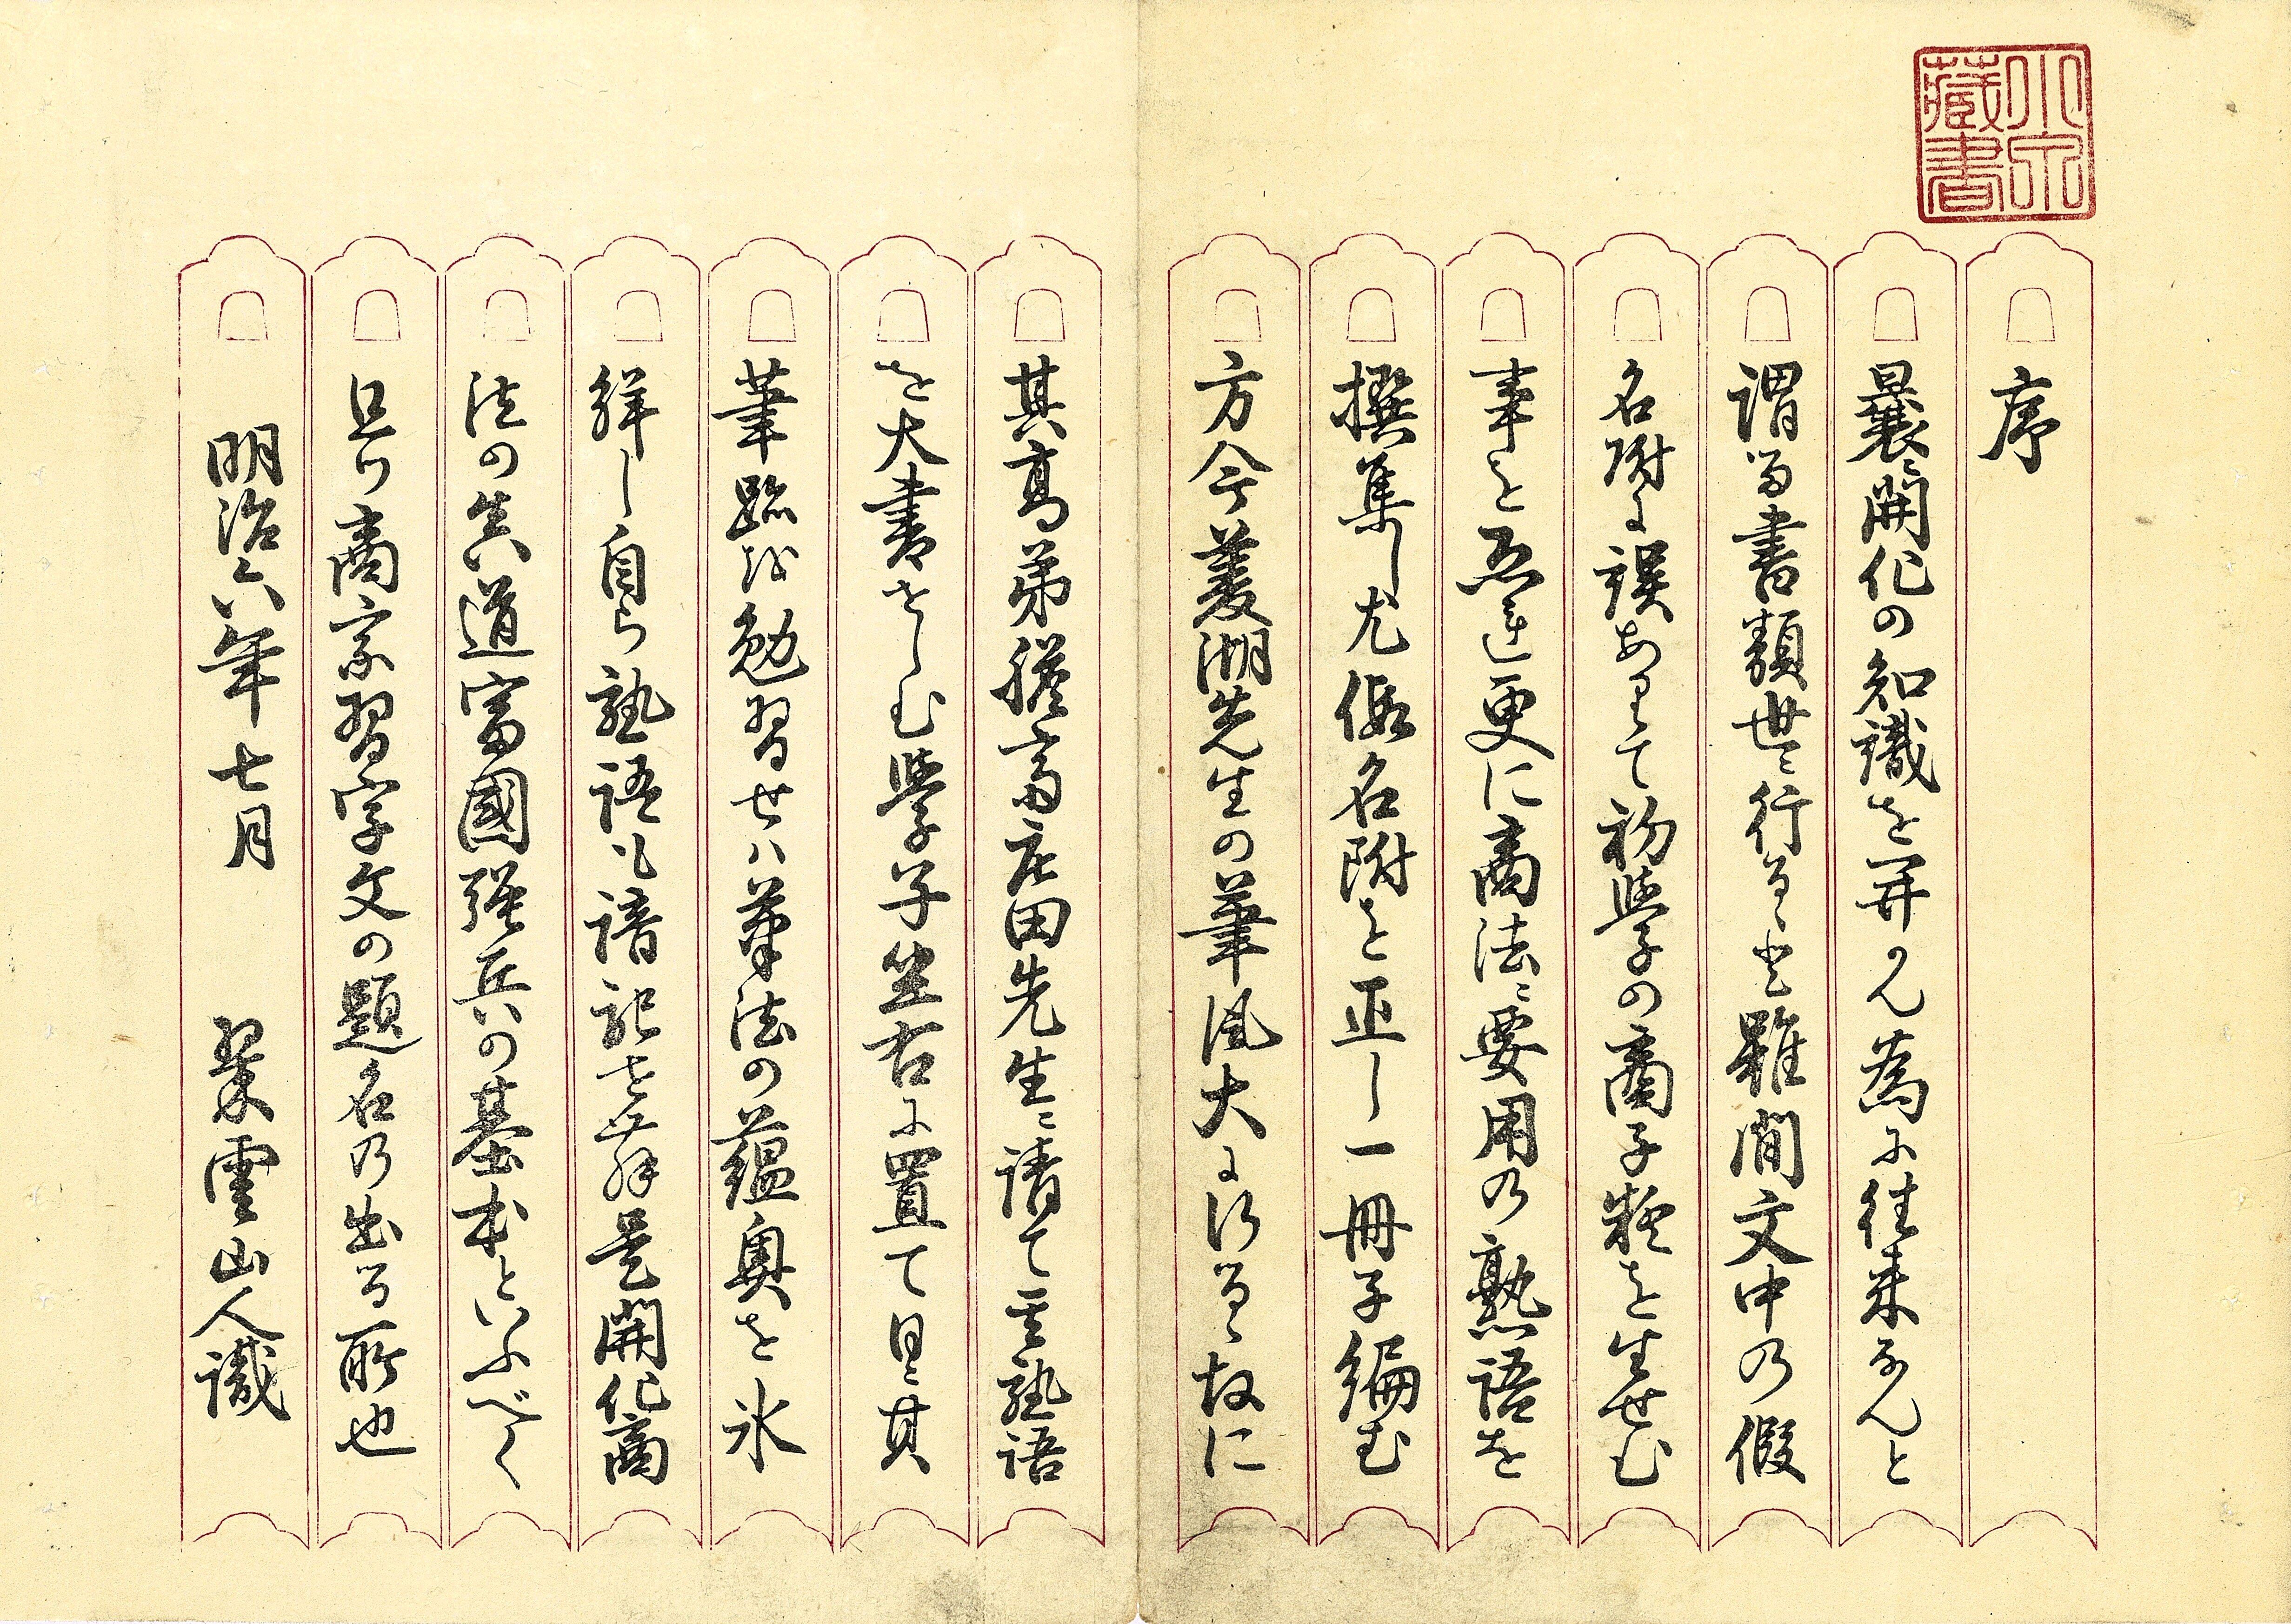 小泉
藏書
序
曩ニ開化の知識を開かん為に往来なんと
謂る書類世ニ行るゝと雖間文中の假
名附に誤ありて初學の商子疑を生せむ
事を恐連更に商法ニ要用の熟語を
撰集し尤假名附を正し一冊子編む
方今菱湖先生の筆風大に行るゝ故に
其高弟膽齋庄田先生ニ請て其熟語
を大書せしむ學子坐右に置て日ニ其
筆跡を勉習せハ筆法の蘊奥を氷
觧し自ら熟語も諳記せむ是開化商
法の眞道富國强兵の基本といふべく
且ツ商家習字文の題名の出る所也
明治六年七月　翠雲山人識